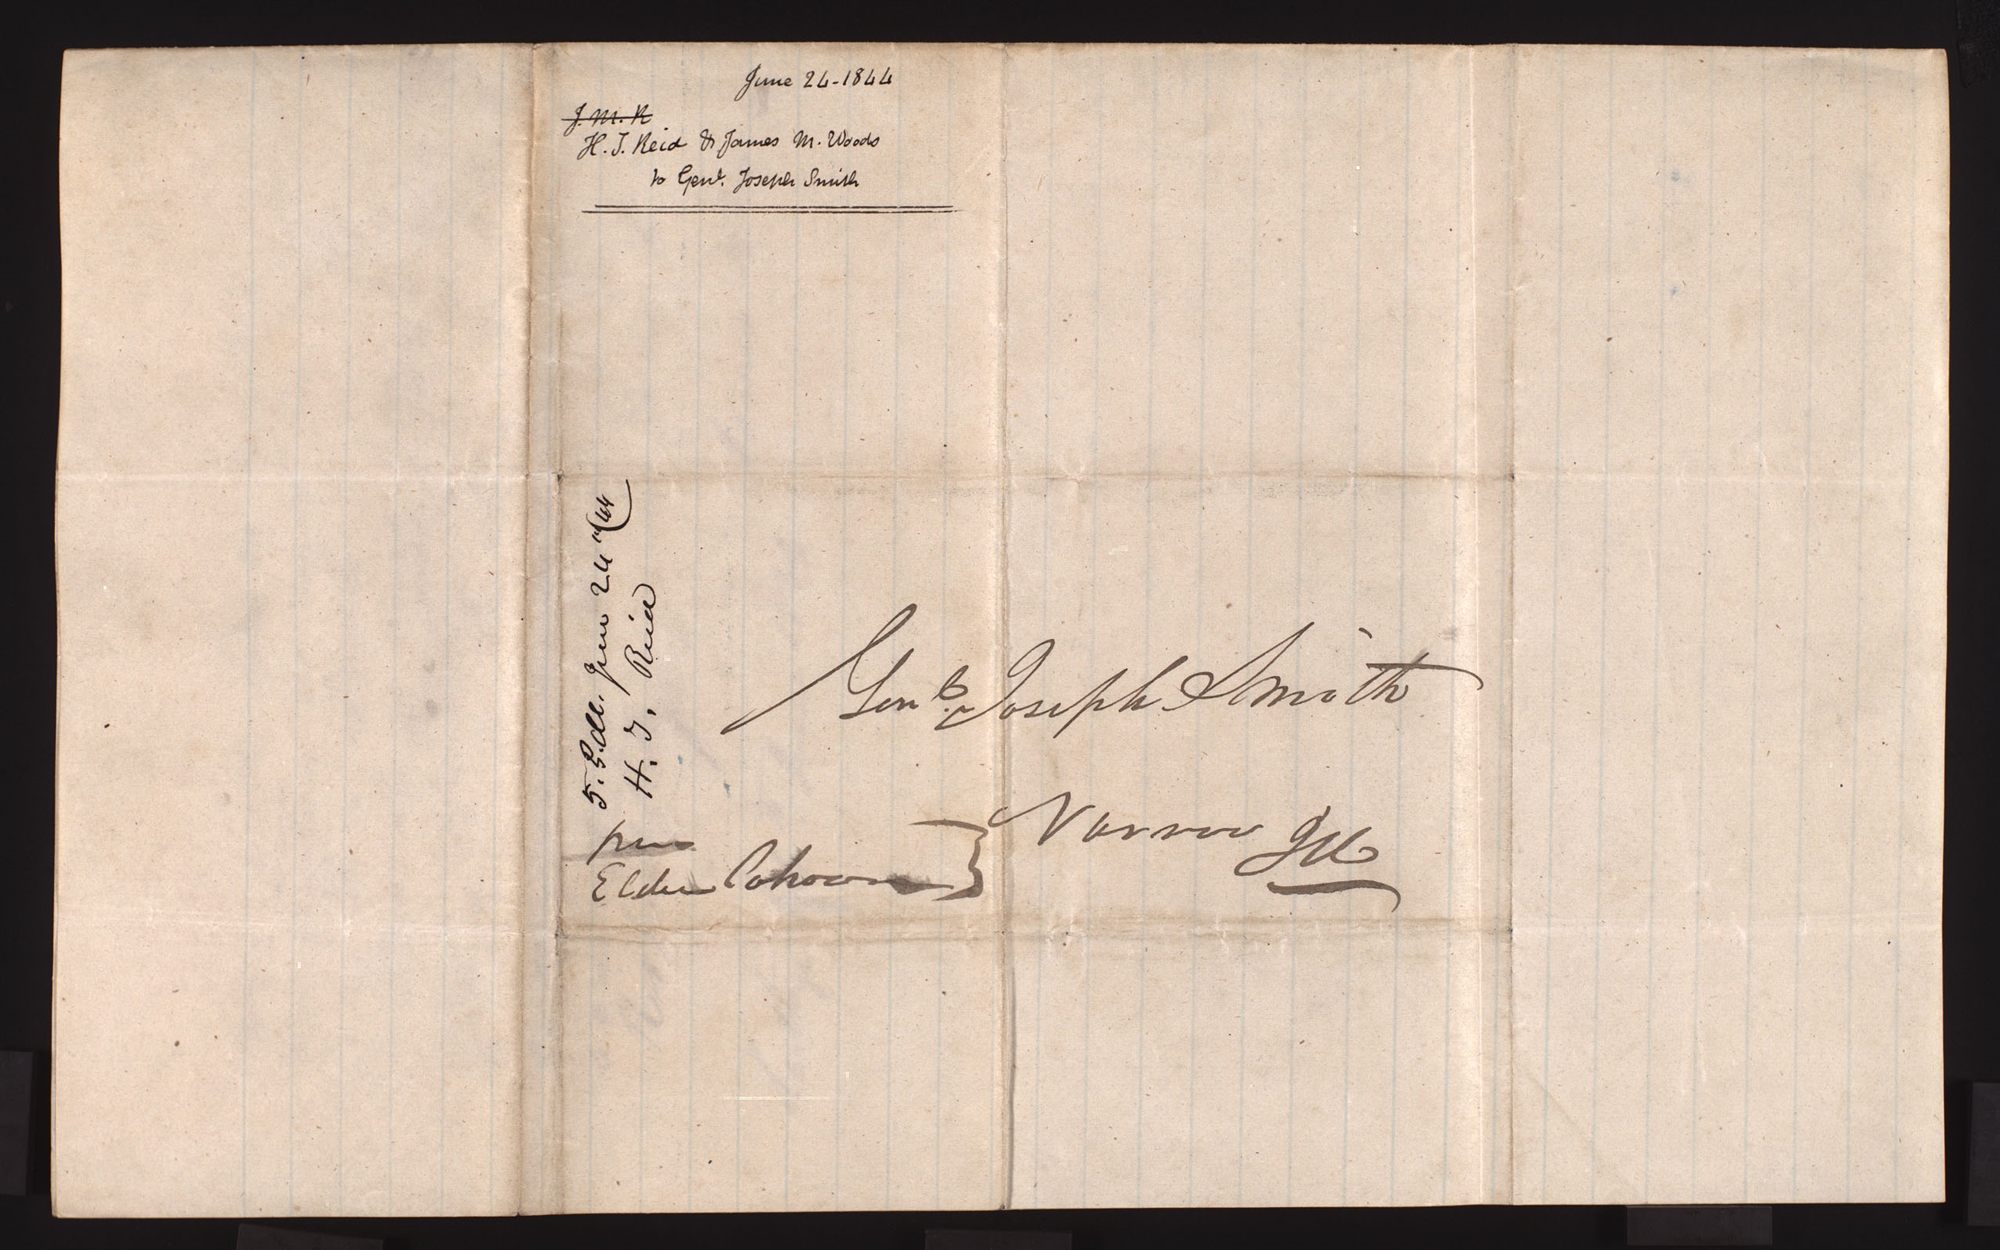 June 24-1844
J. M. R
H. T. Reid & James M. Woods
to Genl. Joseph Smith
June 24th /44
H. T. Reid
Genl. Joseph Smith
Nauvoo Ill
pr
Elder Cahoon